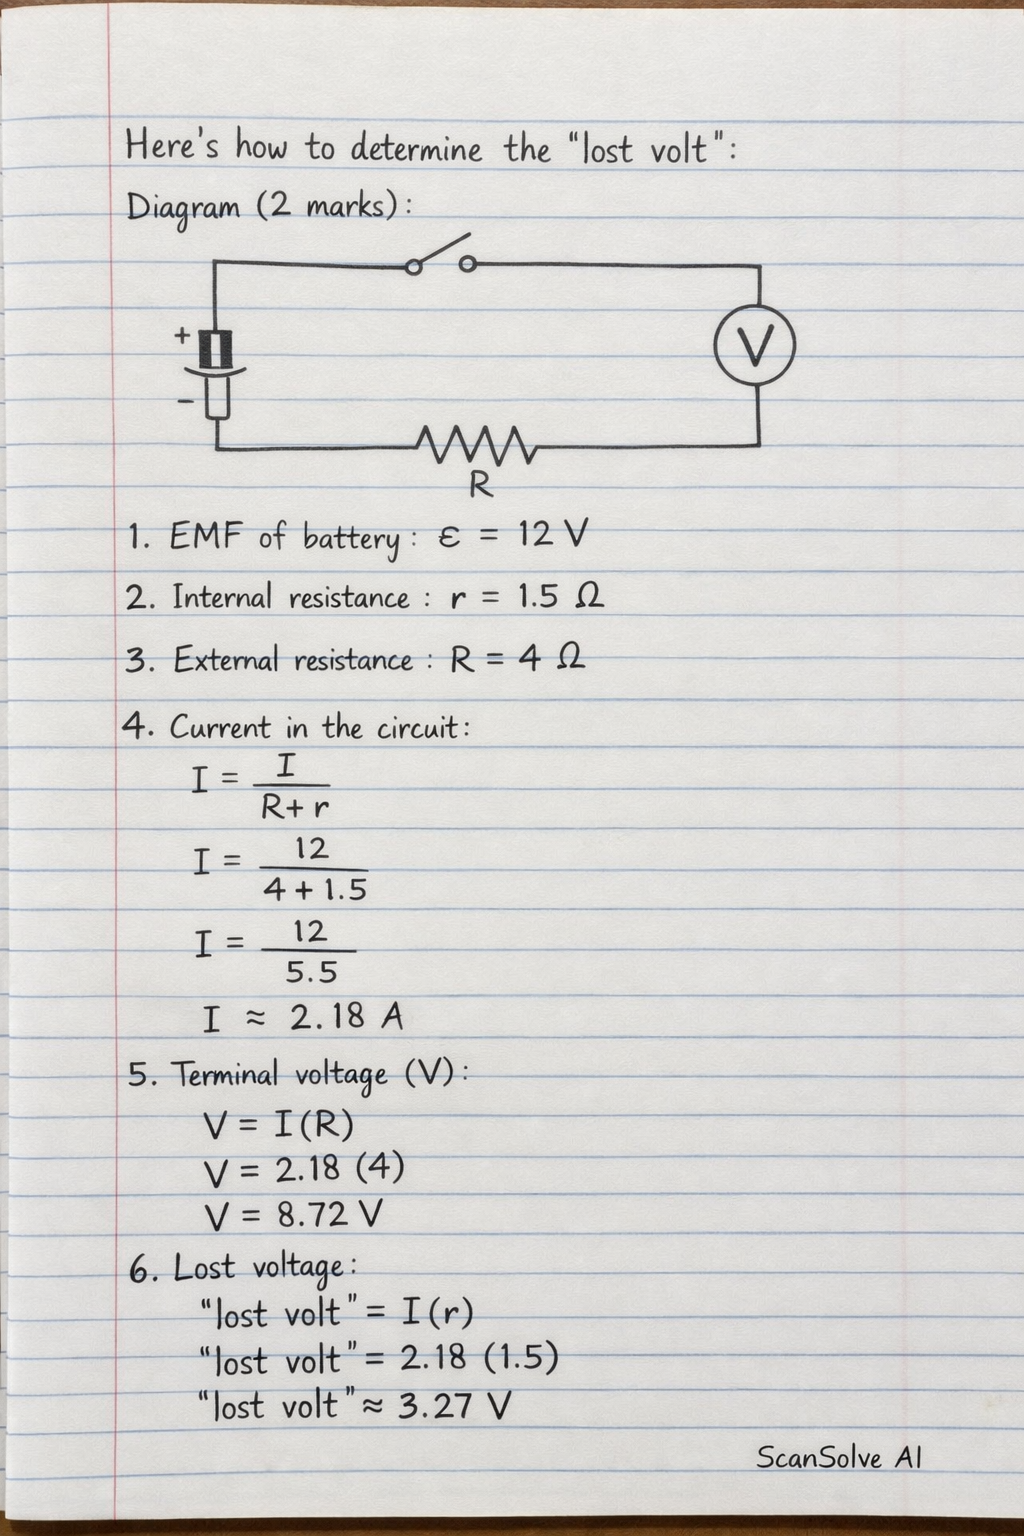 Here's how to determine the "lost volt":
Diagram (2 marks):
+
V
−
R
1. EMF of battery: ε = 12 V
2. Internal resistance : r = 1.5 Ω
3. External resistance : R = 4 Ω
4. Current in the circuit:
I = I / R + r
I = 12 / 4 + 1.5
I = 12 / 5.5
I ≈ 2.18 A
5. Terminal voltage (V):
V = I(R)
V = 2.18 (4)
V = 8.72 V
6. Lost voltage:
"lost volt" = I(r)
"lost volt" = 2.18 (1.5)
"lost volt" ≈ 3.27 V
ScanSolve AI